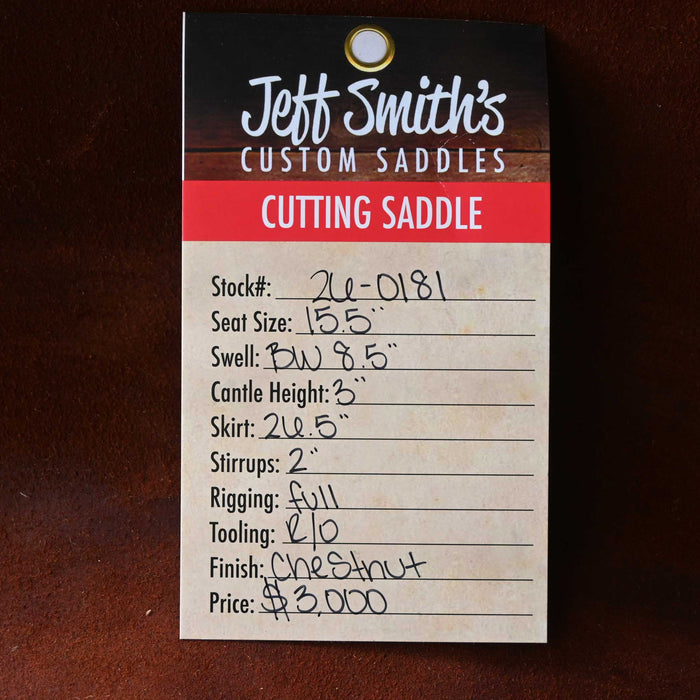 Jeff Smith's
CUSTOM SADDLES
CUTTING SADDLE
Stock#: 26-0181
Seat Size: 15.5"
Swell: BW 8.5"
Cantle Height: 3"
Skirt: 26.5"
Stirrups: 2"
Rigging: full
Tooling: R/O
Finish: Chestnut
Price: $3,000